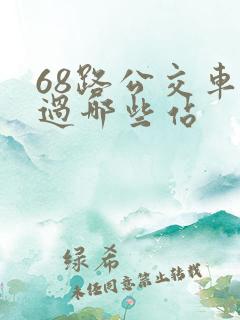 68路公交车
过哪些站
绿希
未经同意禁止转载